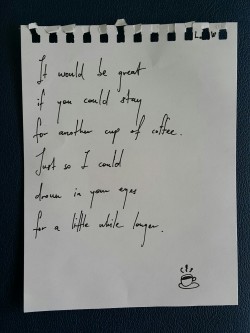 It would be great
if you could stay
for another cup of coffee.
Just so I could
drown in your eyes
for a little while longer.